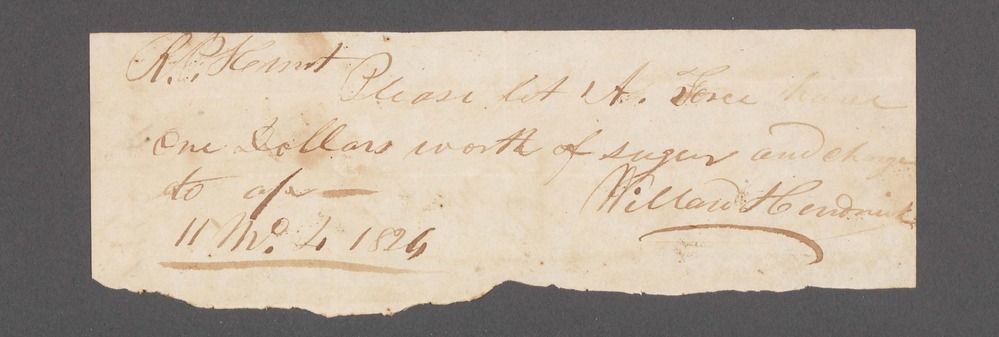 R. P. Hunt
Please let A. Force have
One Dollars worth of sugar and charge
to a/c —
Willard Hendrick
11 Mo. 4 1824